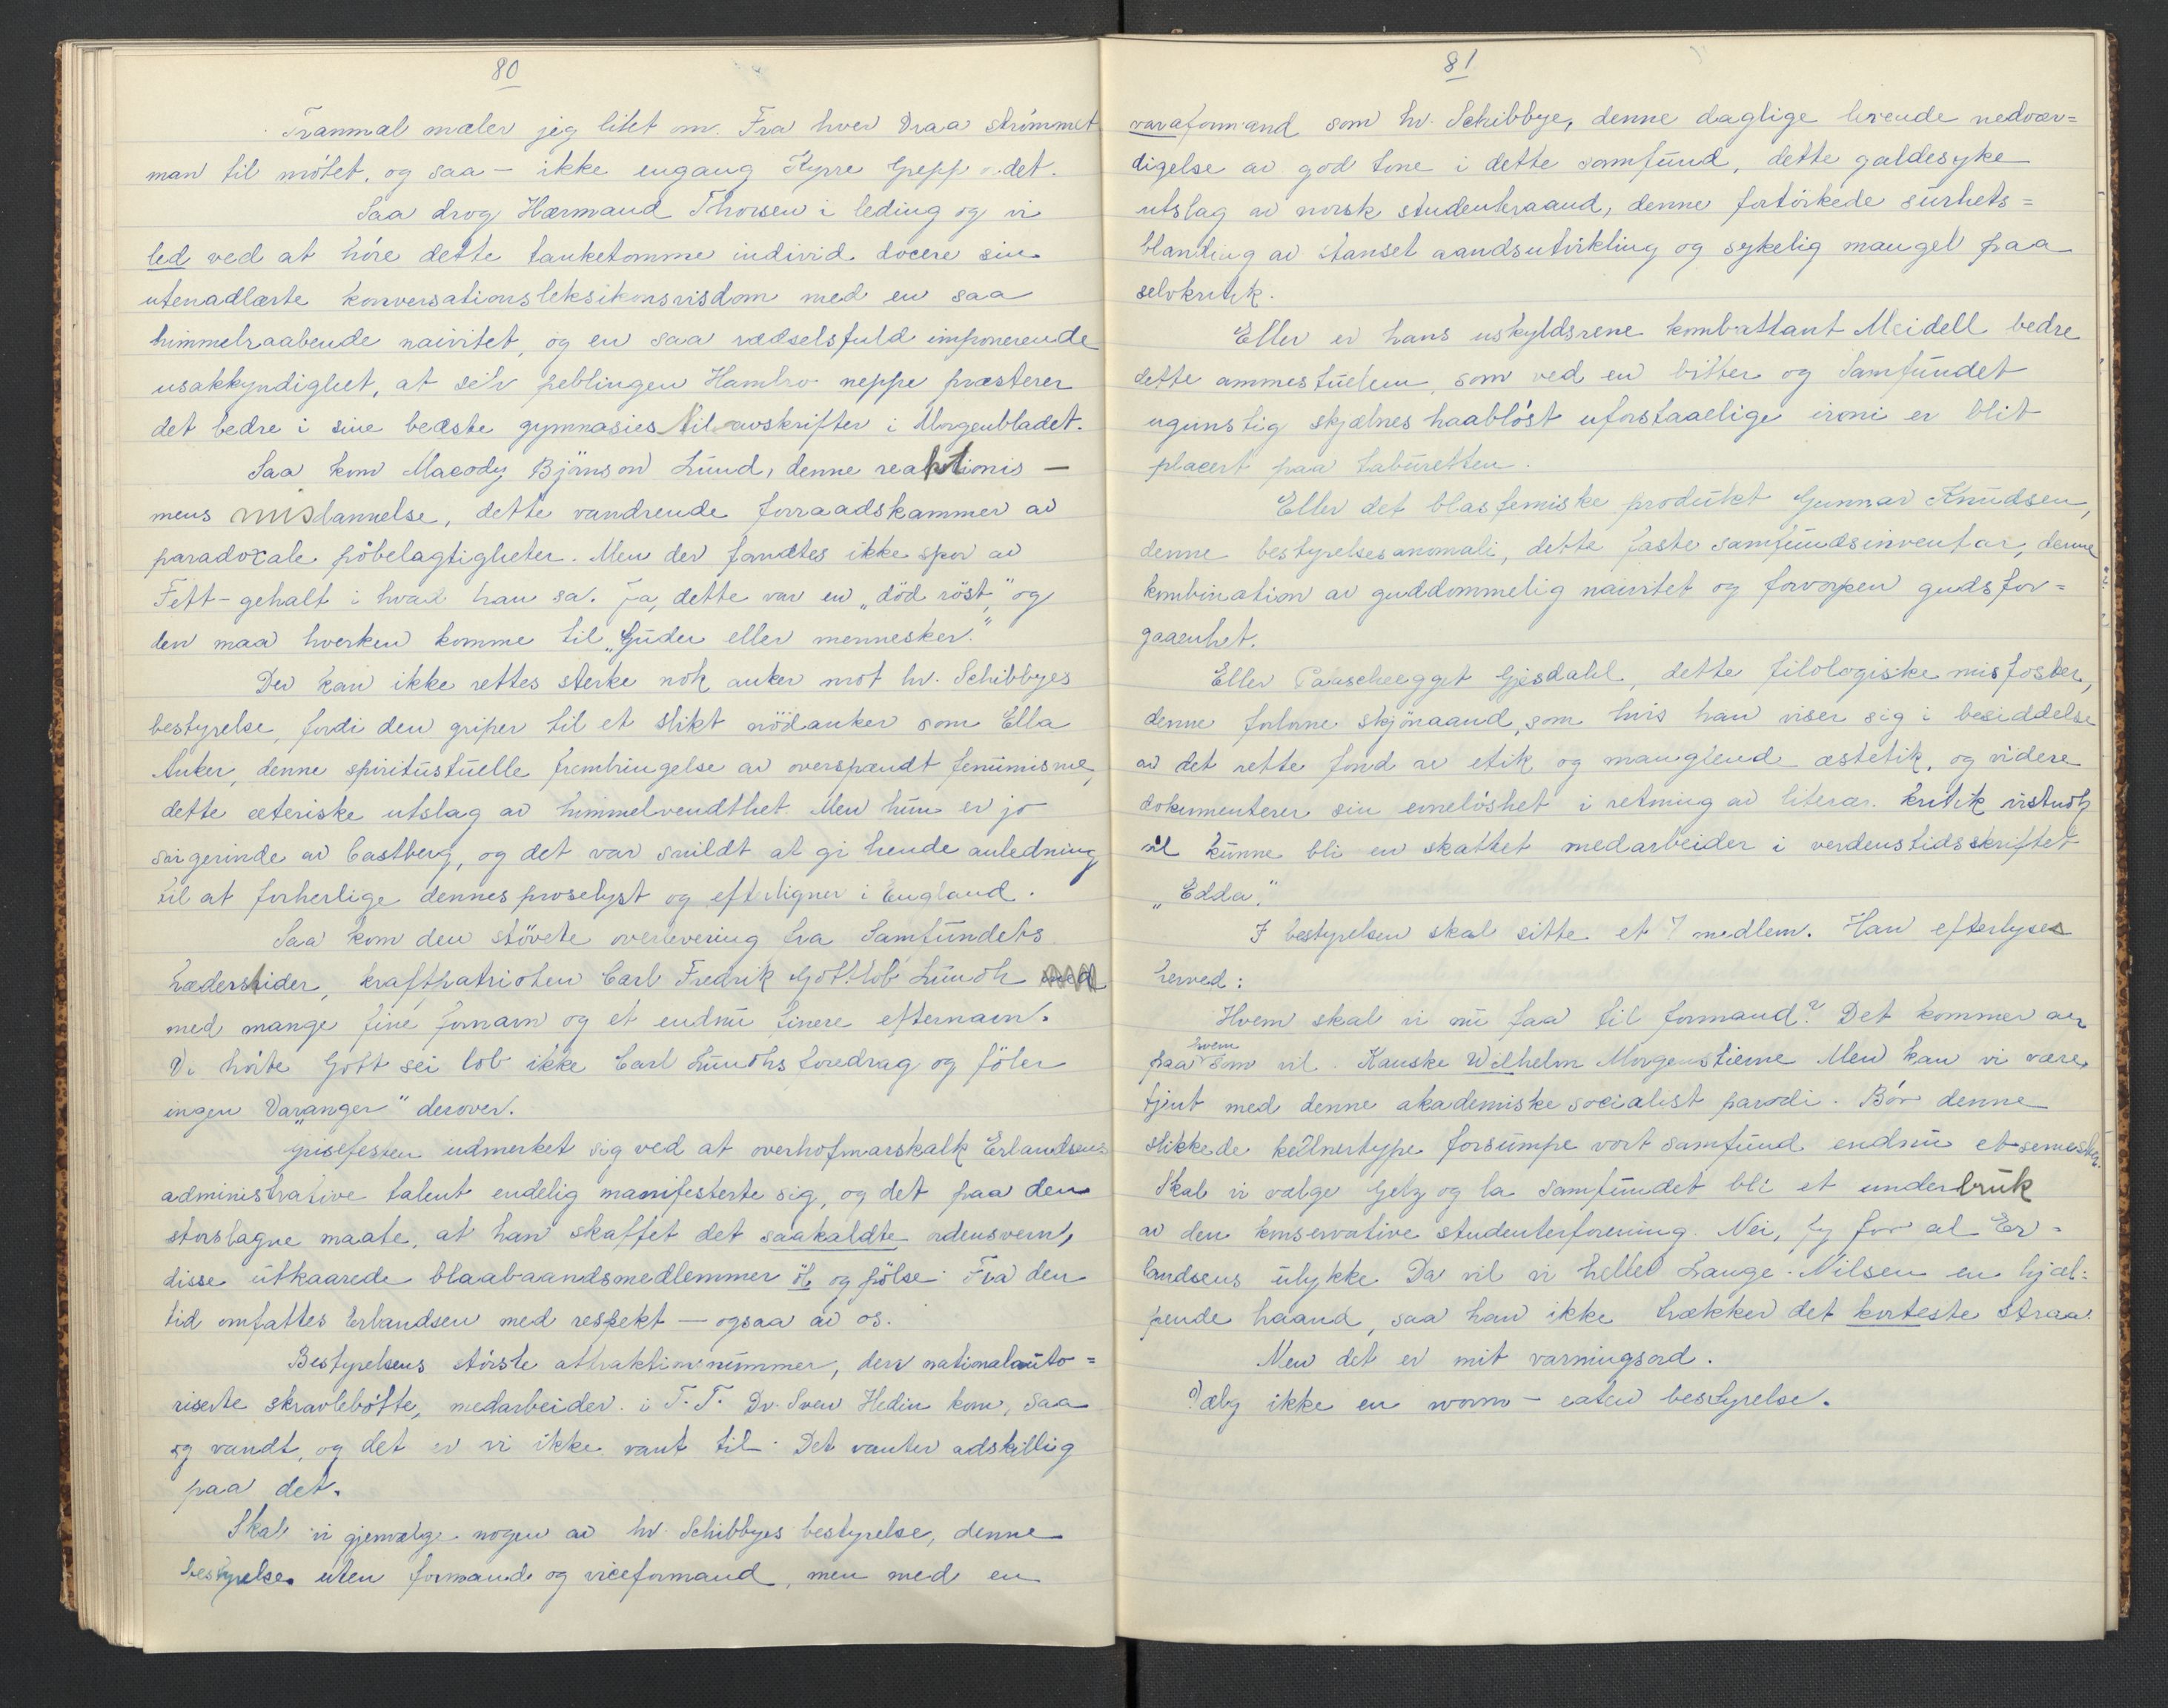 80
Tranmæl mæler jeg litet om. Fra hver Vraa strømmet
man til møtet, og saa — ikke engang Kyrre Grepp det.
Saa drog Hærmand Thorsen i leding og vi
led ved at høre dette tanketomme individ docere sin
utenadlærte konversationsleksikonsvisdom med en saa
himmelraabende naivitet, og en saa rædselsfuld imponerende
usakkyndighet, at selv peblingen Hambro neppe præsterer
det bedre i sine bedste gymnasiestil avskrifter i Morgenbladet.
Saa kom Macody Bjørnson Lund, denne reaktionis —
mens misdannelse, dette vandrende forraadskammer av
paradoxale pøbelagtigheter. Men der fandtes ikke spor av
Fett-gehalt i hvad han sa. Ja, dette var en „død røst", og
den maa hverken komme til „Guder eller mennesker."
Der kan ikke rettes sterke nok anker mot hr. Schibbyes
bestyrelse, fordi den griper til et slikt nødanker som Ella
Anker, denne spiritustuelle frembringelse av overspændt feminisme,
dette æteriske utslag av himmelvendthet. Men hun er jo
svigerinde av Castberg, og det var snildt at gi hende anledning
til at forherlige dennes proselyst og efterligner i England.
Saa kom den støvete overlevering fra Samfundets
hæderstider, kraftpatrioten Carl Fredrik Gottlob Lundh
med mange fine fornavn og et endnu finere efternavn.
Vi hørte Gott sei lob ikke Carl Lundhs foredrag og føler
ingen „Varanger" derover.
Grisefesten udmerket sig ved at overhofmarskalk Erlandsens
administrative talent endelig manifesterte sig, og det paa den
storslagne maate, at han skaffet det saakaldte ordensvern,
disse utkaarede blaabaandsmedlemmer øl og pølse. Fra den
tid omfattes Erlandsen med respekt — ogsaa av os.
Bestyrelsens største attraktionsnummer, den nationalauto=
riserte skravlebøtte, medarbeider i T.T. Dr. Sven Hedin kom, saa
og vandt, og det er vi ikke vant til. Det vanter adskillig
paa det.
Skal vi gjenvælge nogen av hr. Schibbyes bestyrelse, denne
bestyrelse uten formand og viceformand, men med en
81
varaformand som hr. Schibbye, denne daglige levende nedvær=
digelse av god tone i dette samfund, dette galdesyke
utslag av norsk studenteraand, denne fortørkede surhets=
blanding av stanset aandsutvikling og sykelig mangel paa
selvkritik.
Eller er hans uskyldsrene kombattant Meidell bedre
dette ammestuebarn, som ved en bitter og Samfundet
ugunstig skjæbnes haabløst uforstaaelige ironi er blit
placert paa taburetten.
Eller det blasfemiske produkt Gunnar Knudsen,
denne bestyrelsesanomali, dette faste samfundsinventar, denne
kombination av guddommelig naivitet og forvorpen gudsfor=
gaaenhet.
Eller Paascheegget Gjesdahl, dette filologiske misfoster,
denne forlorne skjønaand, som hvis han viser sig i besiddelse
av det rette fond av etik og manglende æstetik, og videre
dokumenterer sin evneløshet i retning av literær kritik vistnok
vil kunne bli en skattet medarbeider i verdenstidsskriftet
„Edda".
I bestyrelsen skal sitte et 7 medlem. Han efterlyses
herved:
Hvem skal vi nu faa til formand? Det kommer an
paa hvem som vil. Kanske Wilhelm Morgenstierne Men kan vi være
tjent med denne akademiske socialist parodi. Bør denne
slikkede kellnertype forsumpe vort samfund endnu et semester.
Skal vi vælge Getz og la samfundet bli et underbruk
av den konservative studenterforening. Nei, fy for al Er=
landsens ulykke Da vil vi heller Lange-Nilsen en hjæl=
pende haand, saa han ikke trækker det korteste straa.
Men det er mit varningsord.
Vælg ikke en worm-eaten bestyrelse.